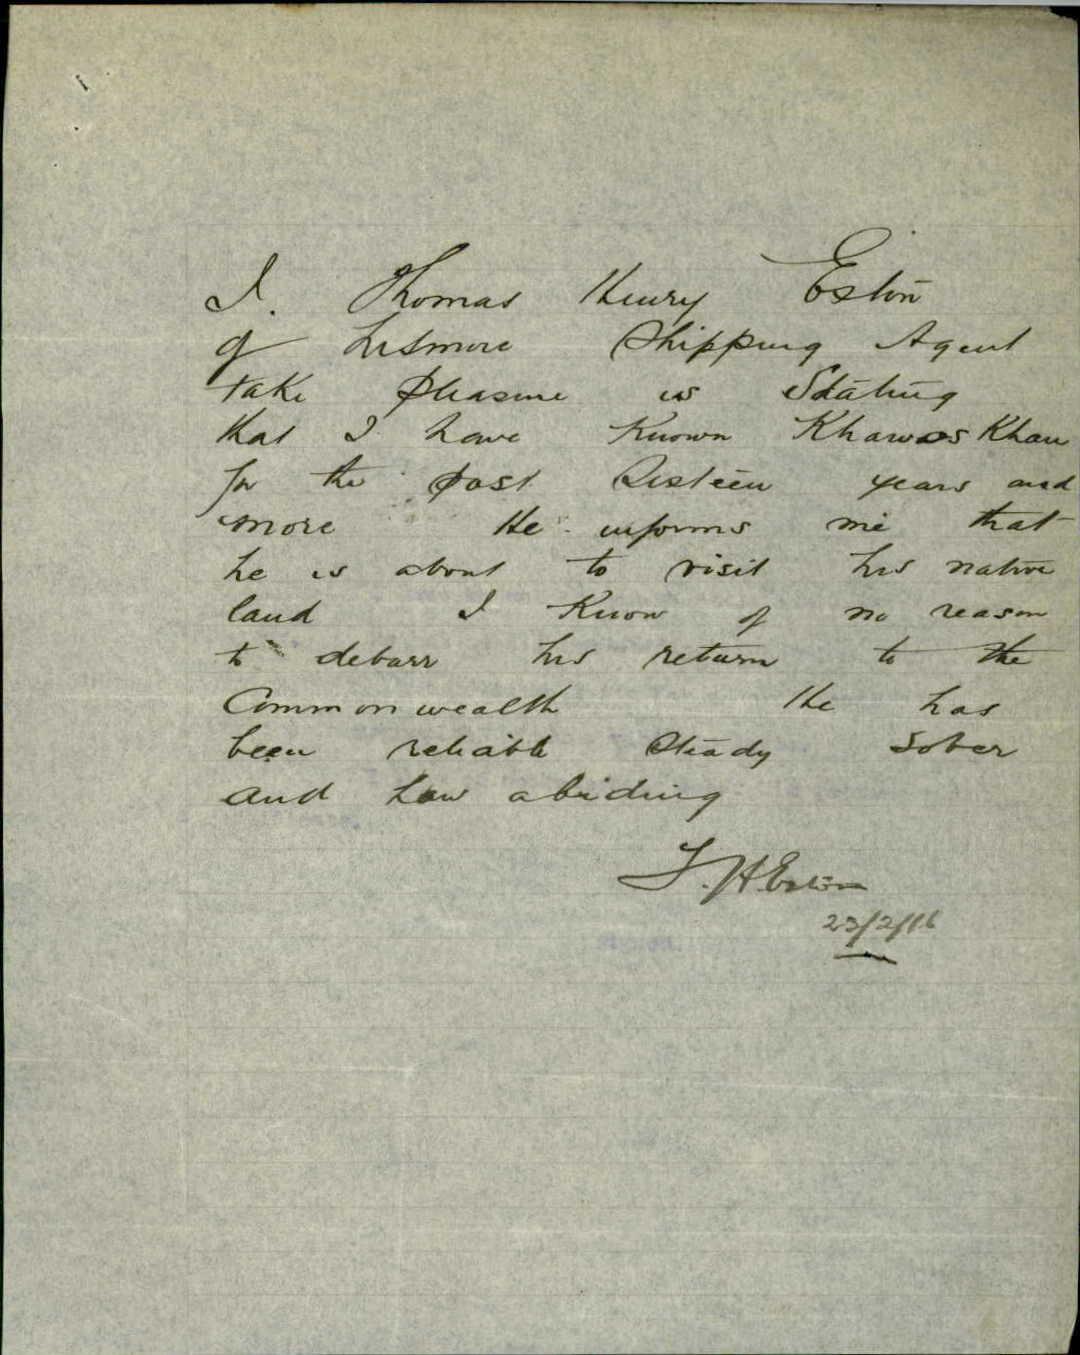 I. Thomas Henry Eston
of Lismore Shipping Agent
take pleasure in Stating
that I have Known Khawas Khan
for the past Sixteen years and
more He informs me that
he is about to visit his native
land I Know of no reason
to debarr his return to the
Commonwealth He has
been reliable Steady Sober
and Law abiding
T. H Eston
23/2/16